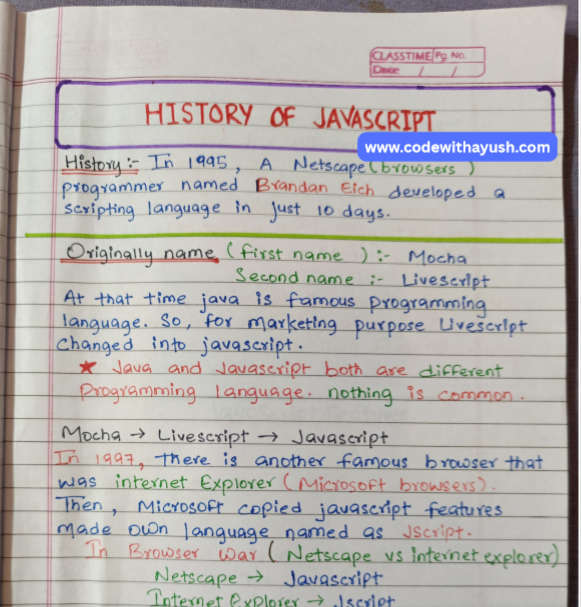 CLASSTIME Pg No.
Date / /
HISTORY OF JAVASCRIPT
www.codewithayush.com
History :- In 1995, A Netscape (browsers)
programmer named Brandan Eich developed a
scripting language in just 10 days.
Originally name (first name ) :- Mocha
Second name :- Livescript
At that time java is famous programming
language. So, for marketing purpose Livescript
changed into javascript.
★ Java and Javascript both are different
Programming language. nothing is common.
Mocha → Livescript → Javascript
In 1997, there is another famous browser that
was internet Explorer (Microsoft browsers).
Then, Microsoft copied javascript features
made own language named as JScript.
In Browser war ( Netscape vs internet explorer)
Netscape → Javascript
Internet Explorer → Jscript